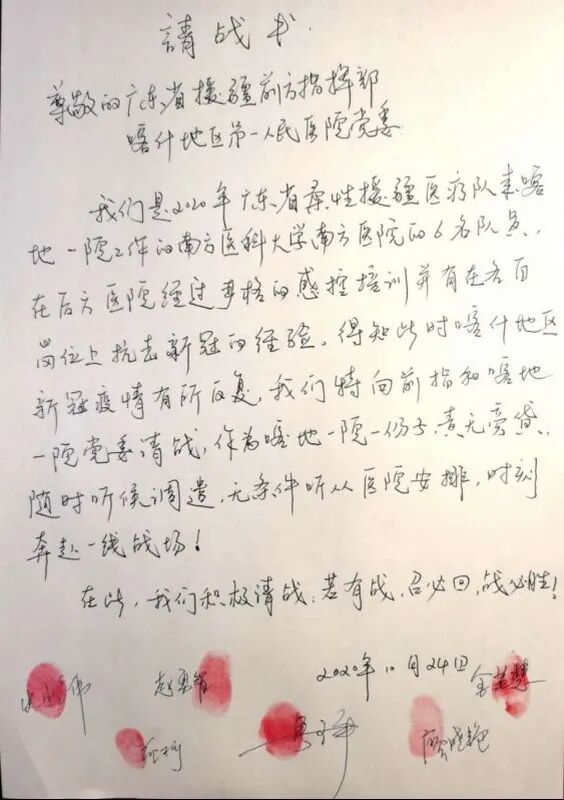 請战书
尊敬的广东省援疆前方指挥部
喀什地区第一人民医院党委
我们是2020年广东省柔性援疆医疗队来喀
地一院工作的南方医科大学南方医院的6名队员,
在后方医院经过严格的感控培训并有在各自
岗位上抗击新冠的经验。得知此时喀什地区
新冠疫情有所反复,我们特向前指和喀地
一院党委请战,作为喀地一院一份子,责无旁贷,
随时听候调遣,无条件听从医院安排,时刻
奔赴一线战场!
在此,我们积极请战:若有战,召必回,战必胜!
2020年10月24日